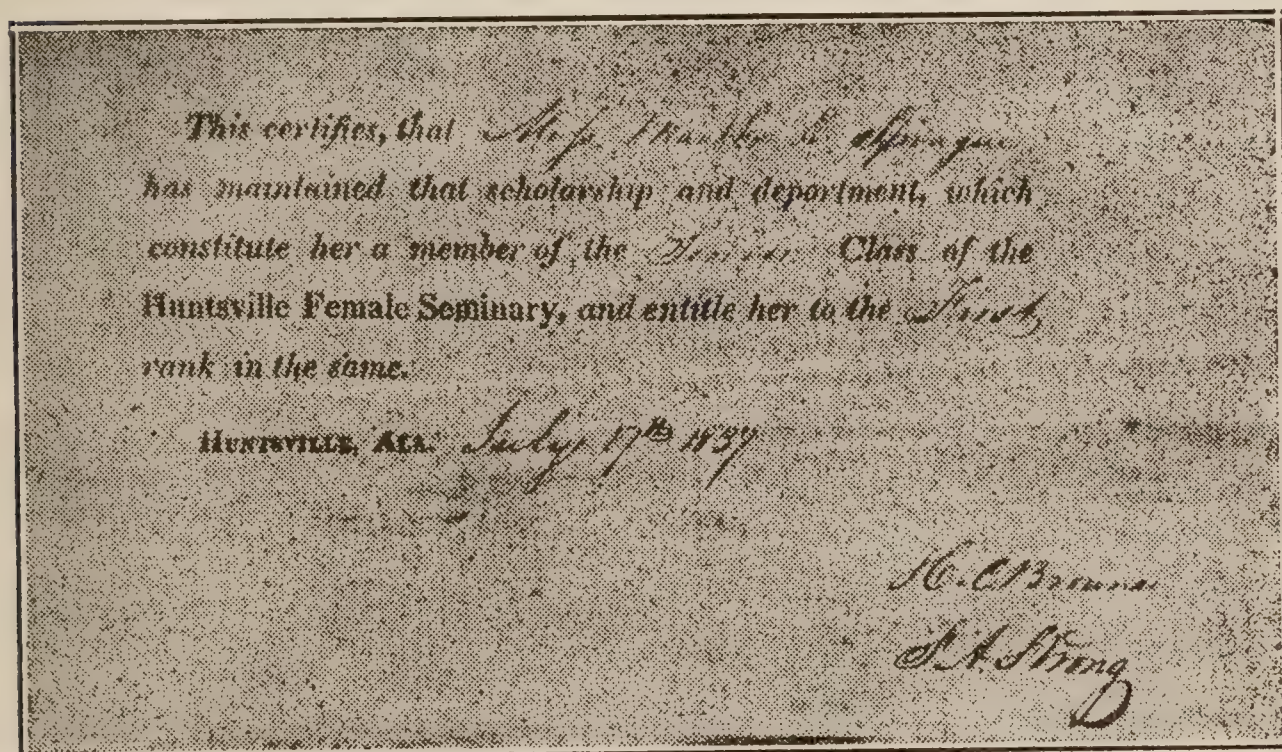 This certifies, that Miss Martha S. Sprague
has maintained that scholarship and department, which
constitute her a member of the Class of the
Huntsville Female Seminary, and entitle her to the First
rank in the same.
HUNTSVILLE, ALA. July 17th 1837
H. C. Browne
S. A. Strong